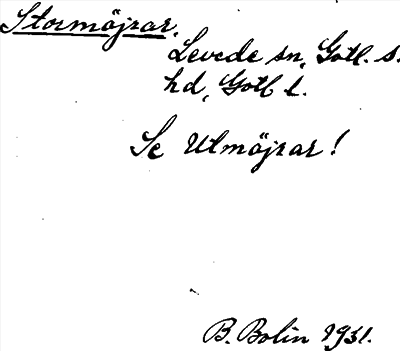 Stormöjrar.
Levede sn, Gotl. s.
hd, Gotl l.
Se Utmöjrar!
B. Bolin 1931.